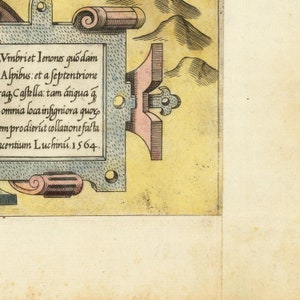 Vmbri et Ienones quōdam
Alpibus: et a septentrione
raq, Castella: tam ātiqua q̄
omnia loca insigniora quor
em prodierūt collatione factā
ncentium Luchinū. 1564.